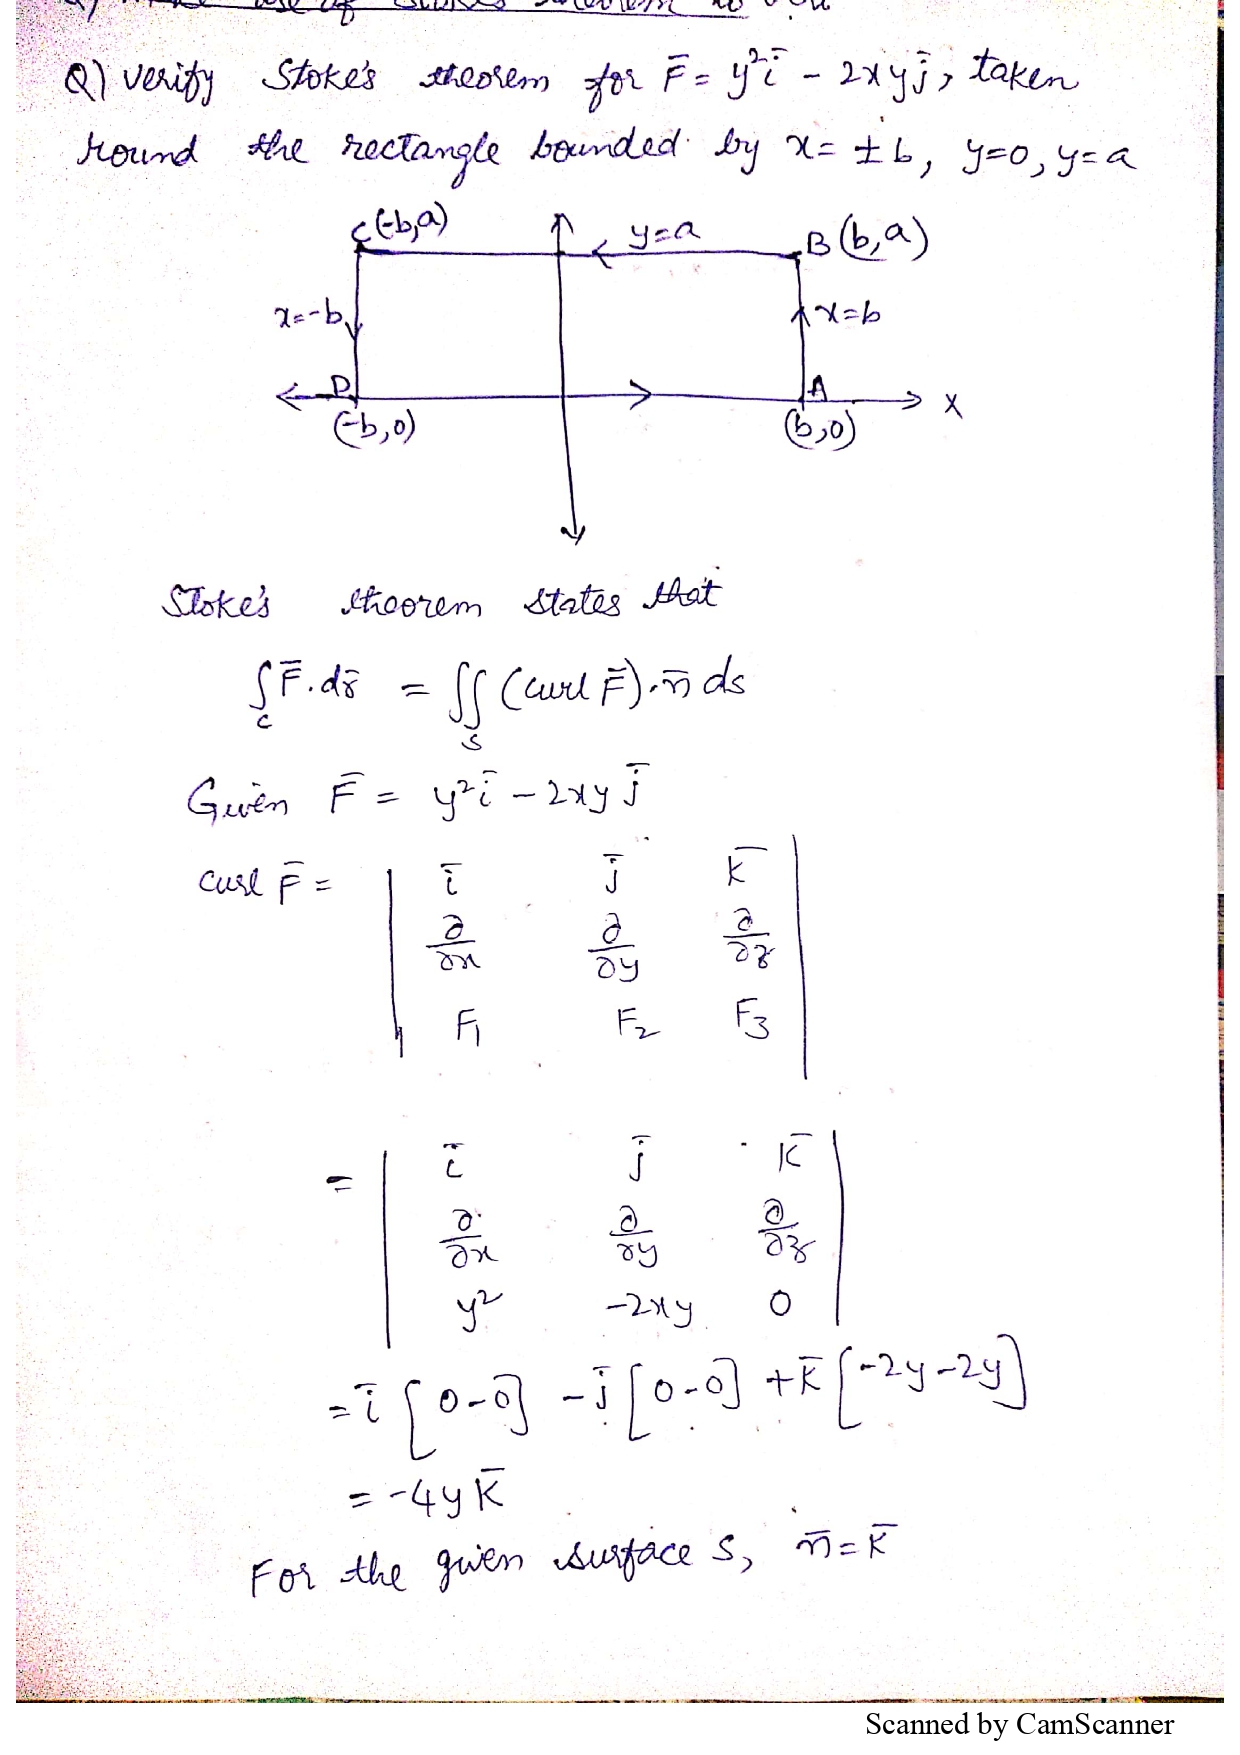 Q) verify Stoke's theorem for F̄ = y²ī - 2xyj̄, taken
round the rectangle bounded by x= ±b, y=0, y=a
C(-b,a)
y=a
B(b,a)
x=-b
x=b
D
A
X
(-b,0)
(b,0)
Stoke's theorem states that
∫_c F̄.dr̄ = ∬_s (curl F̄).n̄ ds
Given F̄ = y²ī - 2xy j̄
curl F̄ = | ī j̄ k̄ |
∂/∂x ∂/∂y ∂/∂z
F₁ F₂ F₃
= | ī j̄ k̄ |
∂/∂x ∂/∂y ∂/∂z
y² -2xy 0
= ī [0-0] - j̄ [0-0] + k̄ [-2y-2y]
= -4y k̄
For the given surface S, n̄ = k̄
Scanned by CamScanner